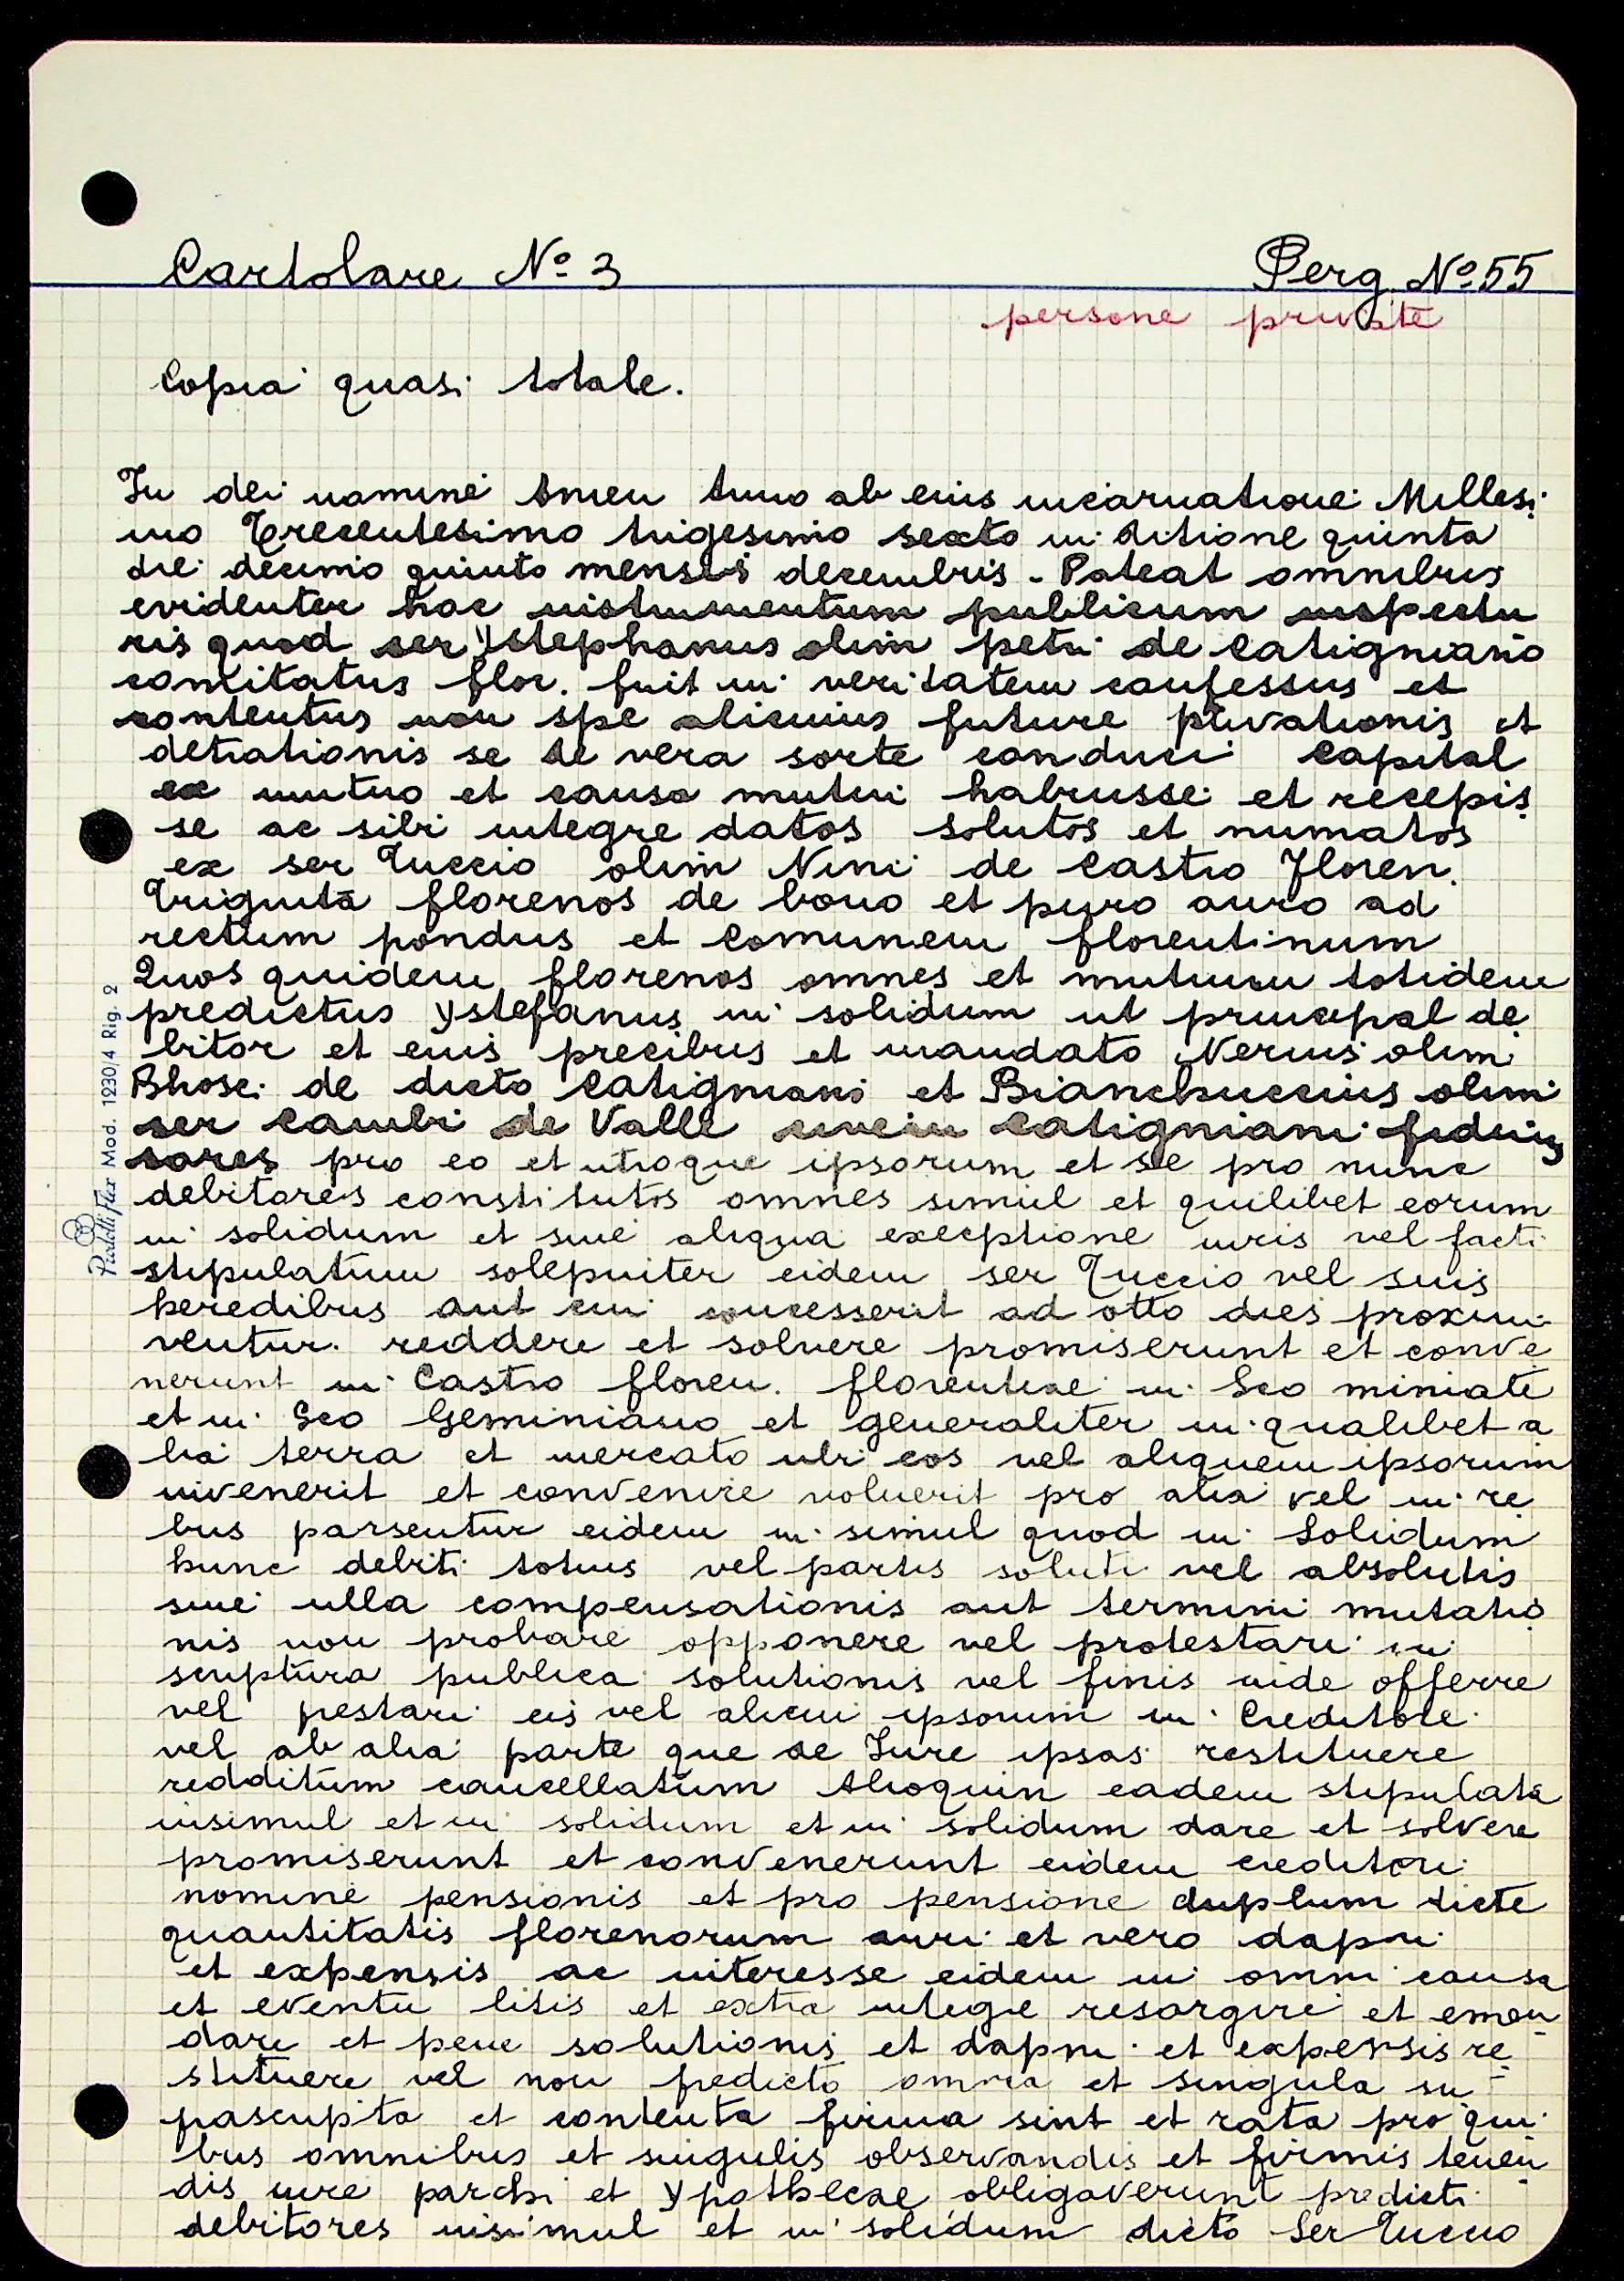 Cartolare Nº 3
Perg. Nº 55
persone private
Copia quasi totale.
In dei nomine Amen Anno ab eius incarnatione Millesi
mo Trecentesimo trigesimo sexto inditione quinta
die decimo quinto mensis decembris - Pateat omnibus
evidenter hoc instrumentum publicum inspectu
ris quod ser Ystephanus olim petri de Catigniano
comitatus flor. fuit in veritatem confessus et
contentus non spe alicuius future privationis et
detrationis se de vera sorte conduci capital
ex mutuo et causa mutui habuisse et recepis
se ac sibi integre datos solutos et numatos
ex ser Tuccio olim Nini de Castro Floren.
Triginta florenos de bono et puro auro ad
rectum pondus et Comunem florentinum
Quos quidem florenos omnes et mutuum totidem
predictus ystefanus in solidum ut principal de
bitor et eius precibus et mandato Nerius olim
Bhosci de dicto Catigniani et Bianchuccius olim
ser Cambi de Valle Catigniani fideius
sores pro eo et utroque ipsorum et se pro nunc
debitores constitutos omnes simul et quilibet eorum
in solidum et sine aliqua exceptione iuris vel facti
stipulatum solepniter eidem ser Tuccio vel suis
heredibus aut cui concesserit ad otto dies proximi
ventur. reddere et solvere promiserunt et conve
nerunt in Castro floren. florentiae in Sco miniate
et in Sco Geminiano et generaliter in qualibet a
lia terra et mercato ubi eos vel aliquem ipsorum
invenerit et convenire voluerit pro alia vel in re
bus parsentur eidem in simul quod in Solidum
hunc debiti totius vel partis soluti vel absolutis
sine ulla compensationis aut termini mutatio
nis non probare opponere vel protestari in
scriptura publica solutionis vel finis inde offerre
vel prestari eis vel alicui ipsorum in Creditore
vel ab alia parte que de Iure ipsas restituere
redditum cancellatum Alioquin eadem stipulata
insimul et in solidum et in solidum dare et solvere
promiserunt et convenerunt eidem creditori
nomine pensionis et pro pensione duplum dicte
quantitatis florenorum auri et vero dapni
et expensis ac interesse eidem in omni causa
et eventu litis et extra integre resargire et emen
dare et pene solutionis et dapni et expensis re
stituere vel non predicta omnia et singula su
pascripta et contenta firma sint et rata pro qui
bus omnibus et singulis observandis et firmis tenen
dis iure parchi et ypothecae obligaverunt predicti
debitores insimul et in solidum dicto Ser Tuccio
Pixelli Flex Mod. 1230/4 Rig. 2